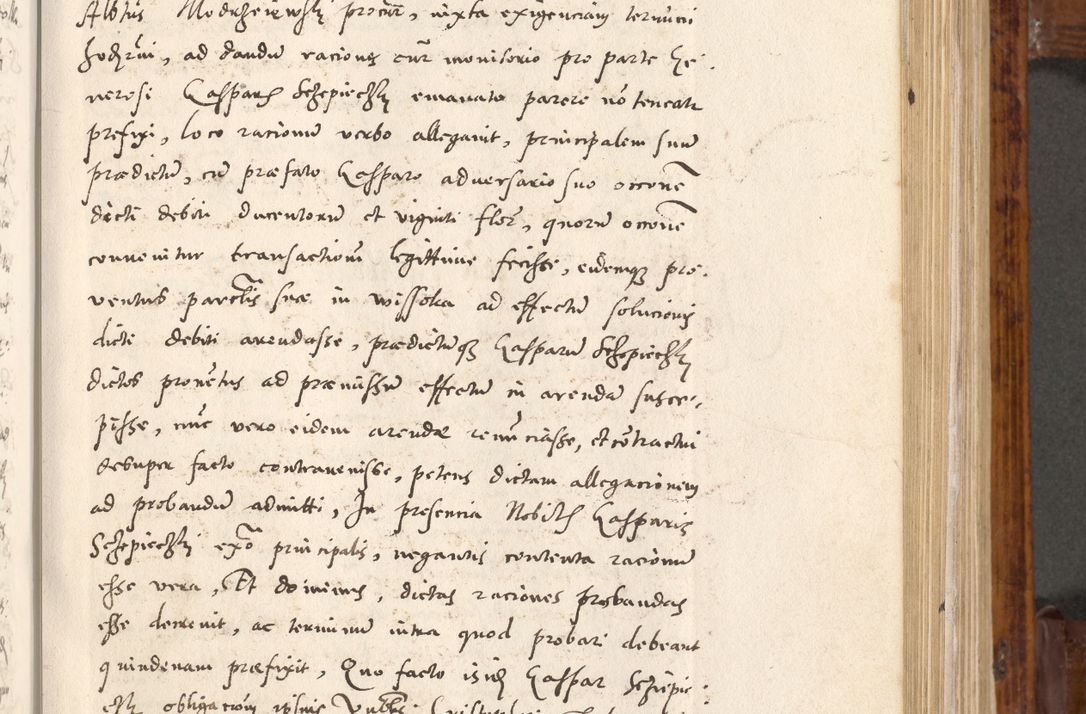 Albtus Modrzeiewsky procur, iuxta exigenciam termini
hodierni, ad dandū raciones cur monitorio pro parte Ge-
nerosi Casparis Sczepieczky emanato parere nō teneatur
prefixi, loco racionū verbo allegavit, principalem suū
prædictū, cū præfato Casparo adversario suo occone
dicti debiti ducentorū et viginti flor, quorū occone
convenitur transactionē legittime fecisse, eidemque pro-
ventus partis suæ in Wissoka ad effectum solucionis
dicti debiti arendasse, prædictūque Casparū Sczepieczky
dictos provētus ad præmissū effectū in arendā susce-
pisse, nūc vero eidem arendæ renūciasse, et cōtractui
desuper facto contravenisse, petens dictam allegacionem
ad probandū admitti, In presencia Nobilis Casparis
Sczepieczky exo principalis, negantis contenta racionū
esse vera, Et dominus, dictas raciones probandas
esse decrevit, ac terminum intra quod probari debeant
quindenam præfixit, Quo facto isidem Caspar Sczepie-
czky obligacionē ipsius